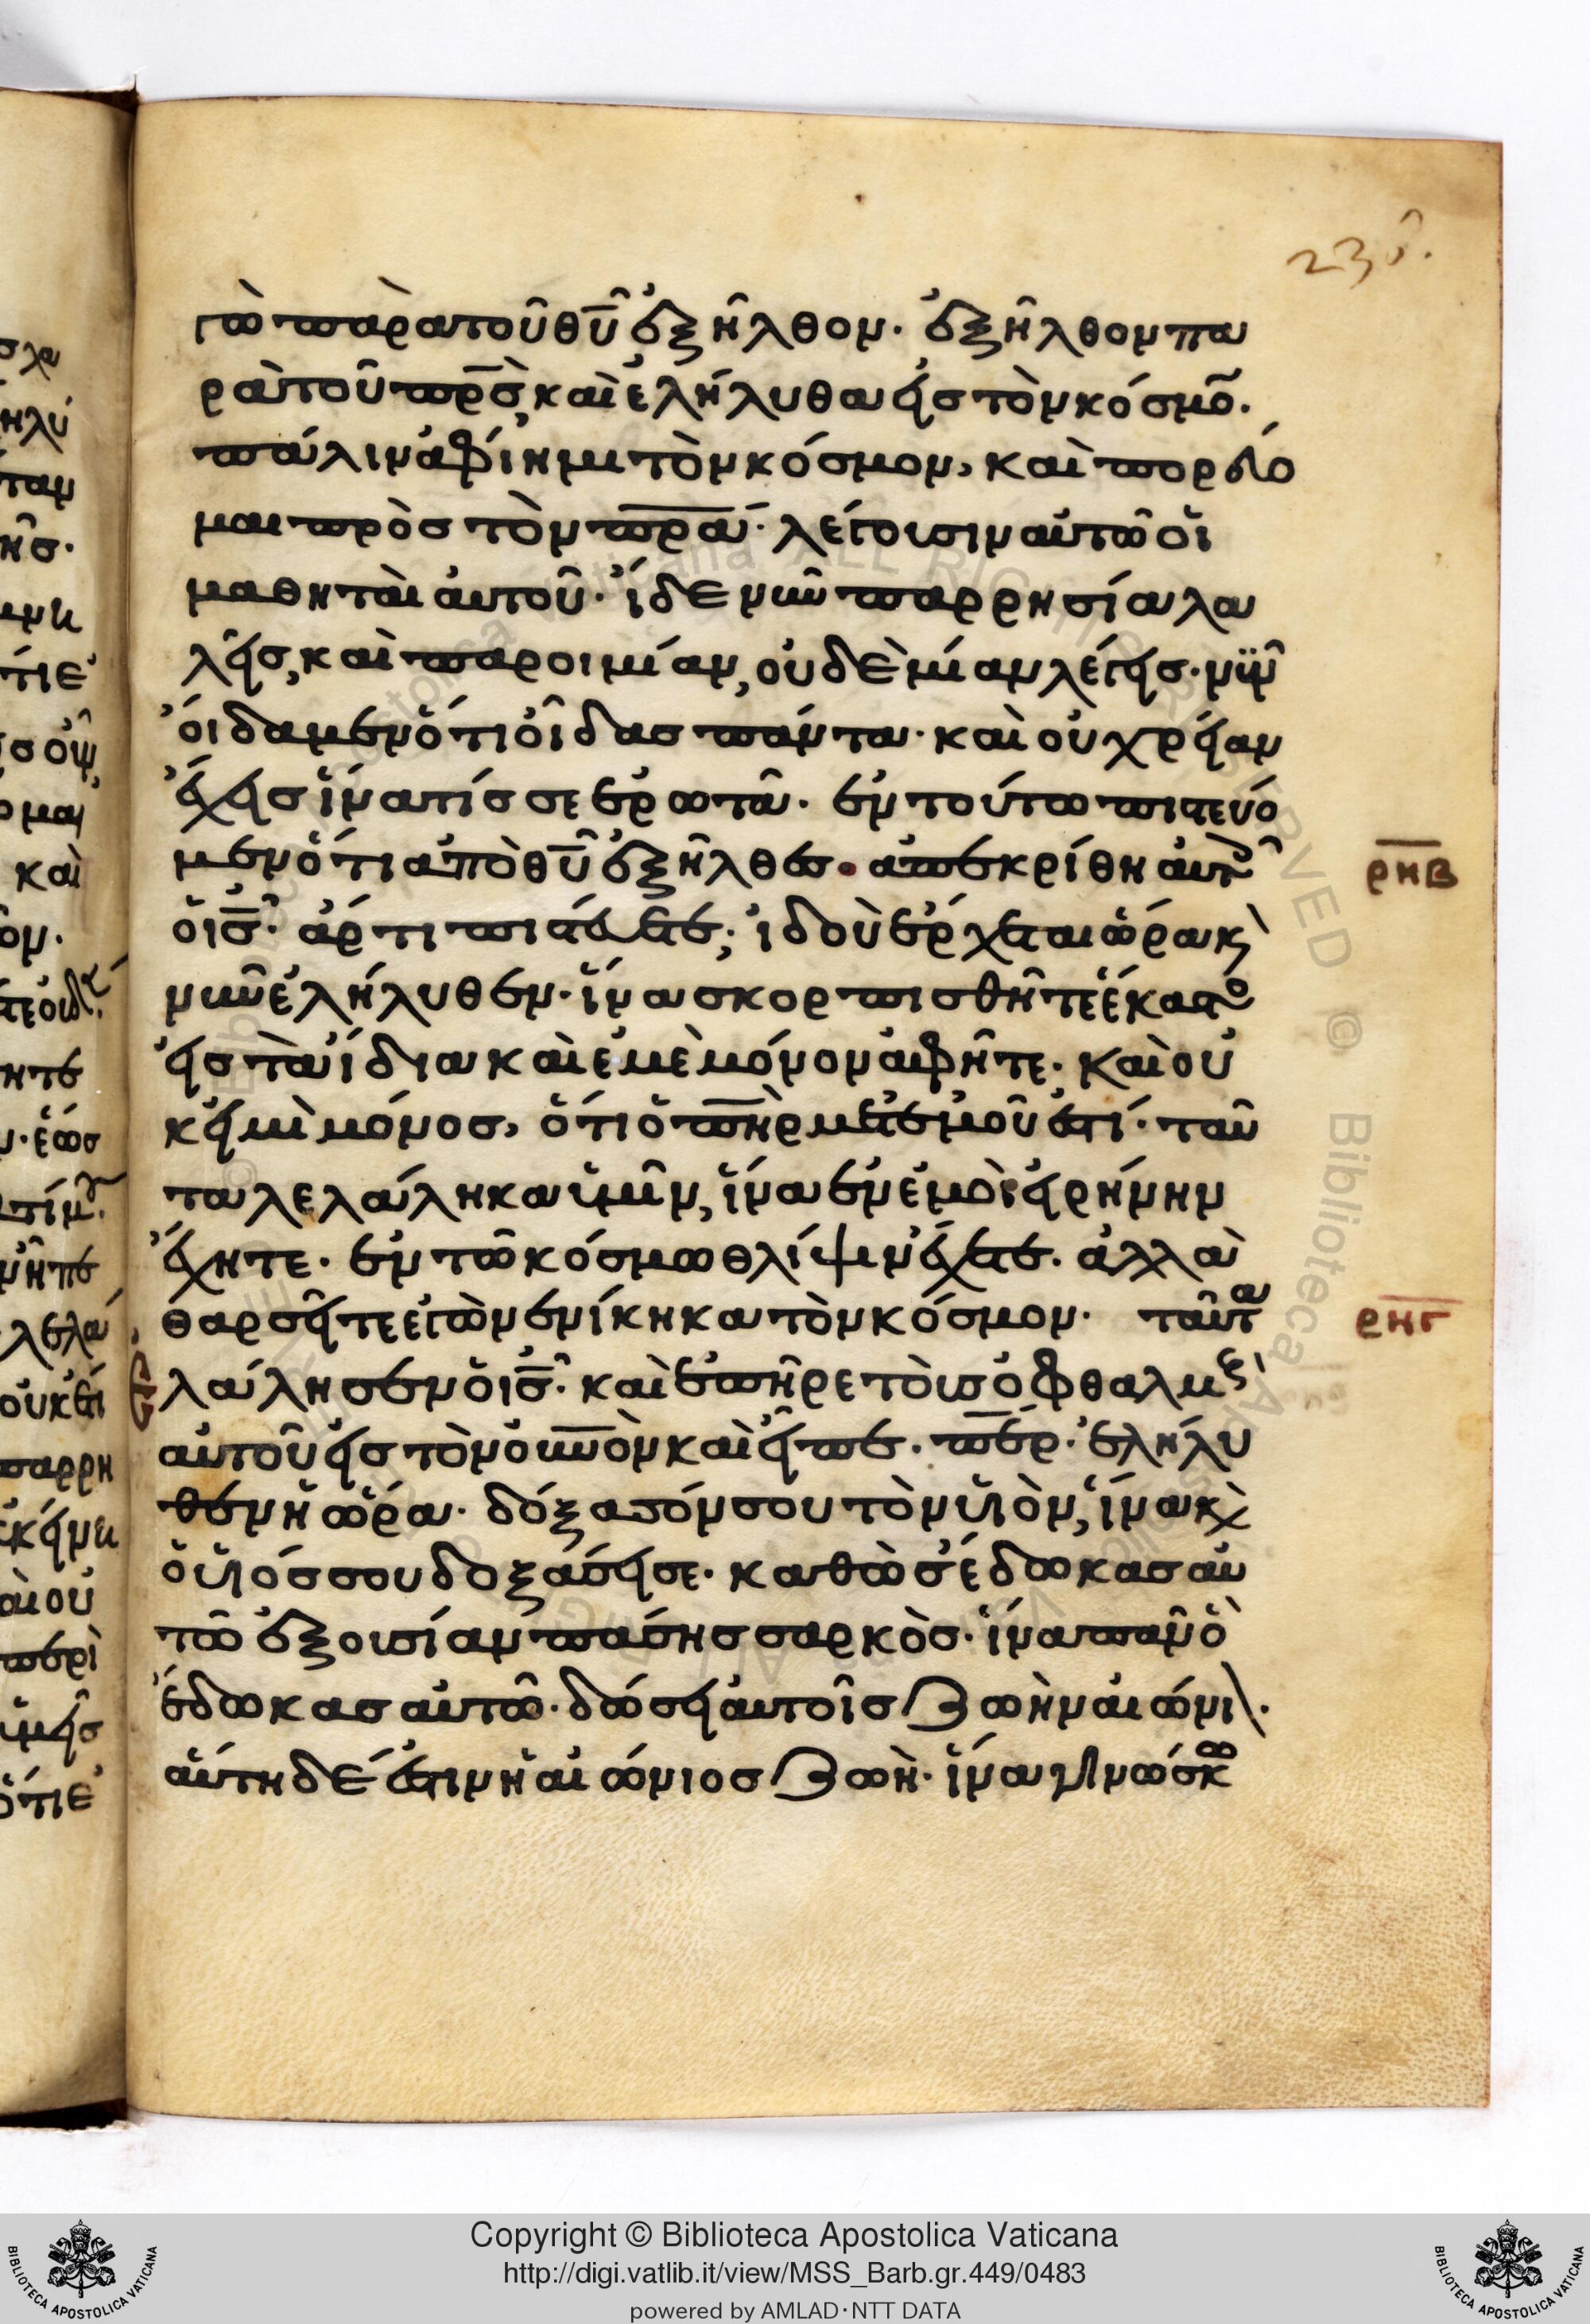 238.
γὼ παρὰ τοῦ θῦ ἐξῆλθον. ἐξῆλθον πα
ρὰ τοῦ πρς, καὶ ἐλήλυθα εἰς τὸν κόσμο.
πάλιν ἀφίημι τὸν κόσμον, καὶ πορεύο
μαι πρὸς τὸν πρα. λέγουσιν αὐτῶ οἱ
μαθηταὶ αὐτοῦ. ἴδε νῦν παρρησία λα
λεῖς, καὶ παροιμίαν, οὐδὲ μίαν λέγεις. νῦν
οἴδαμεν ὅτι οἶδας πάντα. καὶ οὐ χρείαν
ἔχεις ἵνα τίς σε ἐρωτᾶ. ἐν τούτω πιστεύο
μεν ὅτι ἀπὸ θῦ ἐξῆλθες. ἀπεκρίθη αὐτ
ρηβ
ὁ ις. ἄρτι πιστεύετε; ἰδοὺ ἔρχεται ὥρα κ
νῦν ἐλήλυθεν. ἵνα σκορπισθῆτε ἕκαστο
εἰς τὰ ἴδια καὶ ἐμὲ μόνον ἀφῆτε. καὶ οὐ
κ εἰμὶ μόνος, ὅτι ὁ πηρ μετ ἐμοῦ ἐστί. ταῦ
τα λελάληκα ὑμῖν, ἵνα ἐν ἐμοὶ εἰρήνην
ἔχητε. ἐν τῶ κόσμω θλίψιν ἔχετε. ἀλλὰ
θαρσεῖτε ἐγὼ νενίκηκα τὸν κόσμον. ταῦτα
ρηγ
λάλησεν ὁ ις. καὶ ἐπῆρε τοὺς ὀφθαλμς
αὐτοῦ εἰς τὸν οὐνὸν καὶ εἶπε. περ. ἐλήλυ
θεν ἡ ὥρα. δόξασόν σου τὸν υἱὸν, ἵνα κ
ὁ υἱός σου δοξάσει σε. καθὼς ἔδωκας αὐ
τῶ ἐξουσίαν πάσης σαρκὸς. ἵνα πᾶν ὃ
ἔδωκας αὐτῶ. δώσει αὐτοῖς ζωὴν αἰώνι.
αὕτη δέ ἐστιν ἡ αἰώνιος ζωὴ. ἵνα γινώσκω
Copyright © Biblioteca Apostolica Vaticana
http://digi.vatlib.it/view/MSS_Barb.gr.449/0483
powered by AMLAD·NTT DATA
BIBLIOTECA APOSTOLICA VATICANA
BIBLIOTECA APOSTOLICA VATICANA